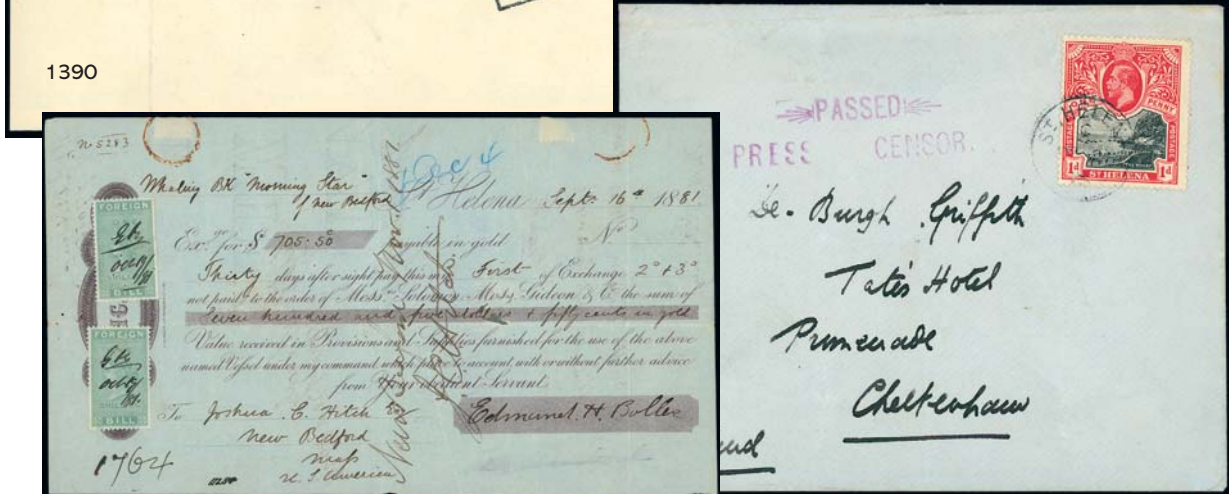 1390
No 5283
Whaling Bk "Morning Star"
of New Bedford
St Helena Sept. 16th 1881.
Exge for $ 705.50 payable in gold No
Thirty days after sight pay this my First of Exchange 2d & 3d
not paid to the order of Messrs Solomon Moss, Gideon & Co the sum of
Seven hundred and five dollars & fifty cents in gold
Value received in Provisions and Supplies furnished for the use of the above
named Vessel under my command which place to account with or without further advice
from Your obedient Servant
To Joshua C. Hitch Esq
Edmund H. Bolles
New Bedford
Mass
U. S. America
1764
FOREIGN
BILL
FOREIGN
BILL
PASSED
PRESS CENSOR.
ST. HELENA
POSTAGE
PENNY
POSTAGE
1d ST HELENA 1d
De. Burgh Griffith
Tate's Hotel
Promenade
Cheltenham